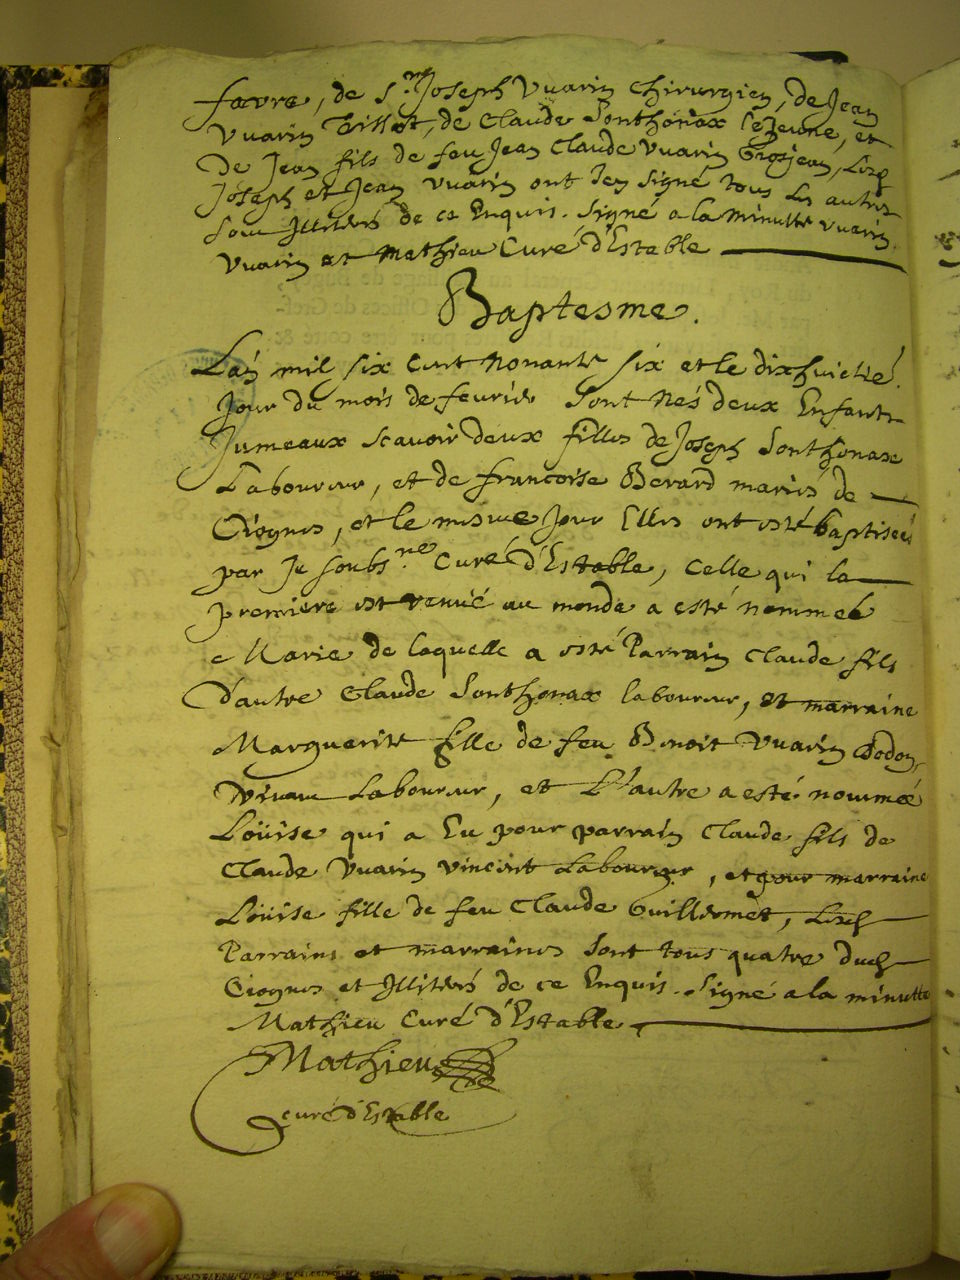 favre, de Sr Joseph Vuarin Chirurgien, de Jean
Vuarin Billot, de Claude Sonthonax le Jeune, et
De Jean fils de feu Jean Claude Vuarin Grosjean, Lesd
Joseph et Jean Vuarin ont Icy signé tous les autres
sont Illiteres de ce Enquis. signé a la minutte Vuarin.
Vuarin et Mathieu Curé d'Estable
Baptesme.
L'an mil six cent nonante six et le dixhuictié.
Jour du mois de feurier sont Nés deux Enfants
Jumeaux scavoir deux filles de Joseph Sonthonax
Laboureur, et de francoise Berard mariés de
Giognes, et le mesme Jour Elles ont esté baptisées
par Je soubs.ne Curé d'Estable, celle qui la
premiere est venuë au monde a esté nommeé
Marie de laquelle a esté Parrain Claude fils
D'autre Claude Sonthonax laboureur, et marraine
Marguerite fille de feu Benoit Vuarin
Laboureur, et L'autre a esté nommeé
Loüise qui a Eu pour parrain Claude fils de
Claude Vuarin vincent Laboureur, et pour marraine
Loüise fille de feu Claude Guillermet, Lesd
Parrains et marraines sont tous quatre dud
Giognes et Illiterés de ce Enquis. signé a la minutte
Mathieu Curé d'Estable
Mathieu
curé d'Estable